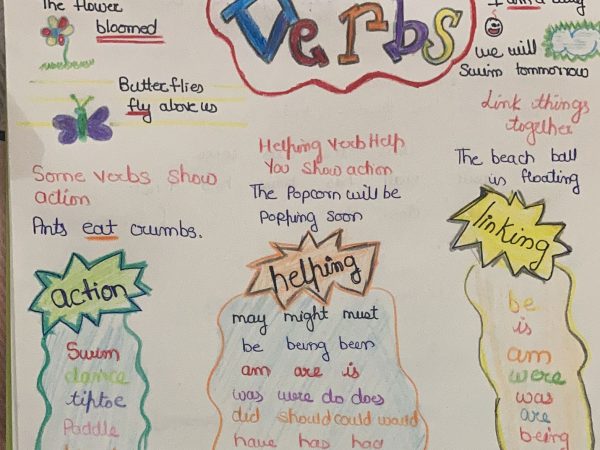 The flower
bloomed
Butterflies
fly above us
Some verbs show
action
Ants eat crumbs.
action
Swim
dance
tiptoe
Paddle
Verbs
Helping verb Help
You show action
The Popcorn will be
Popping soon
helping
may might must
be being been
am are is
was were do does
did should could would
have has had
we will
Swim tommorrow
Link things
together
The beach ball
is floating
linking
be
is
am
were
was
are
being